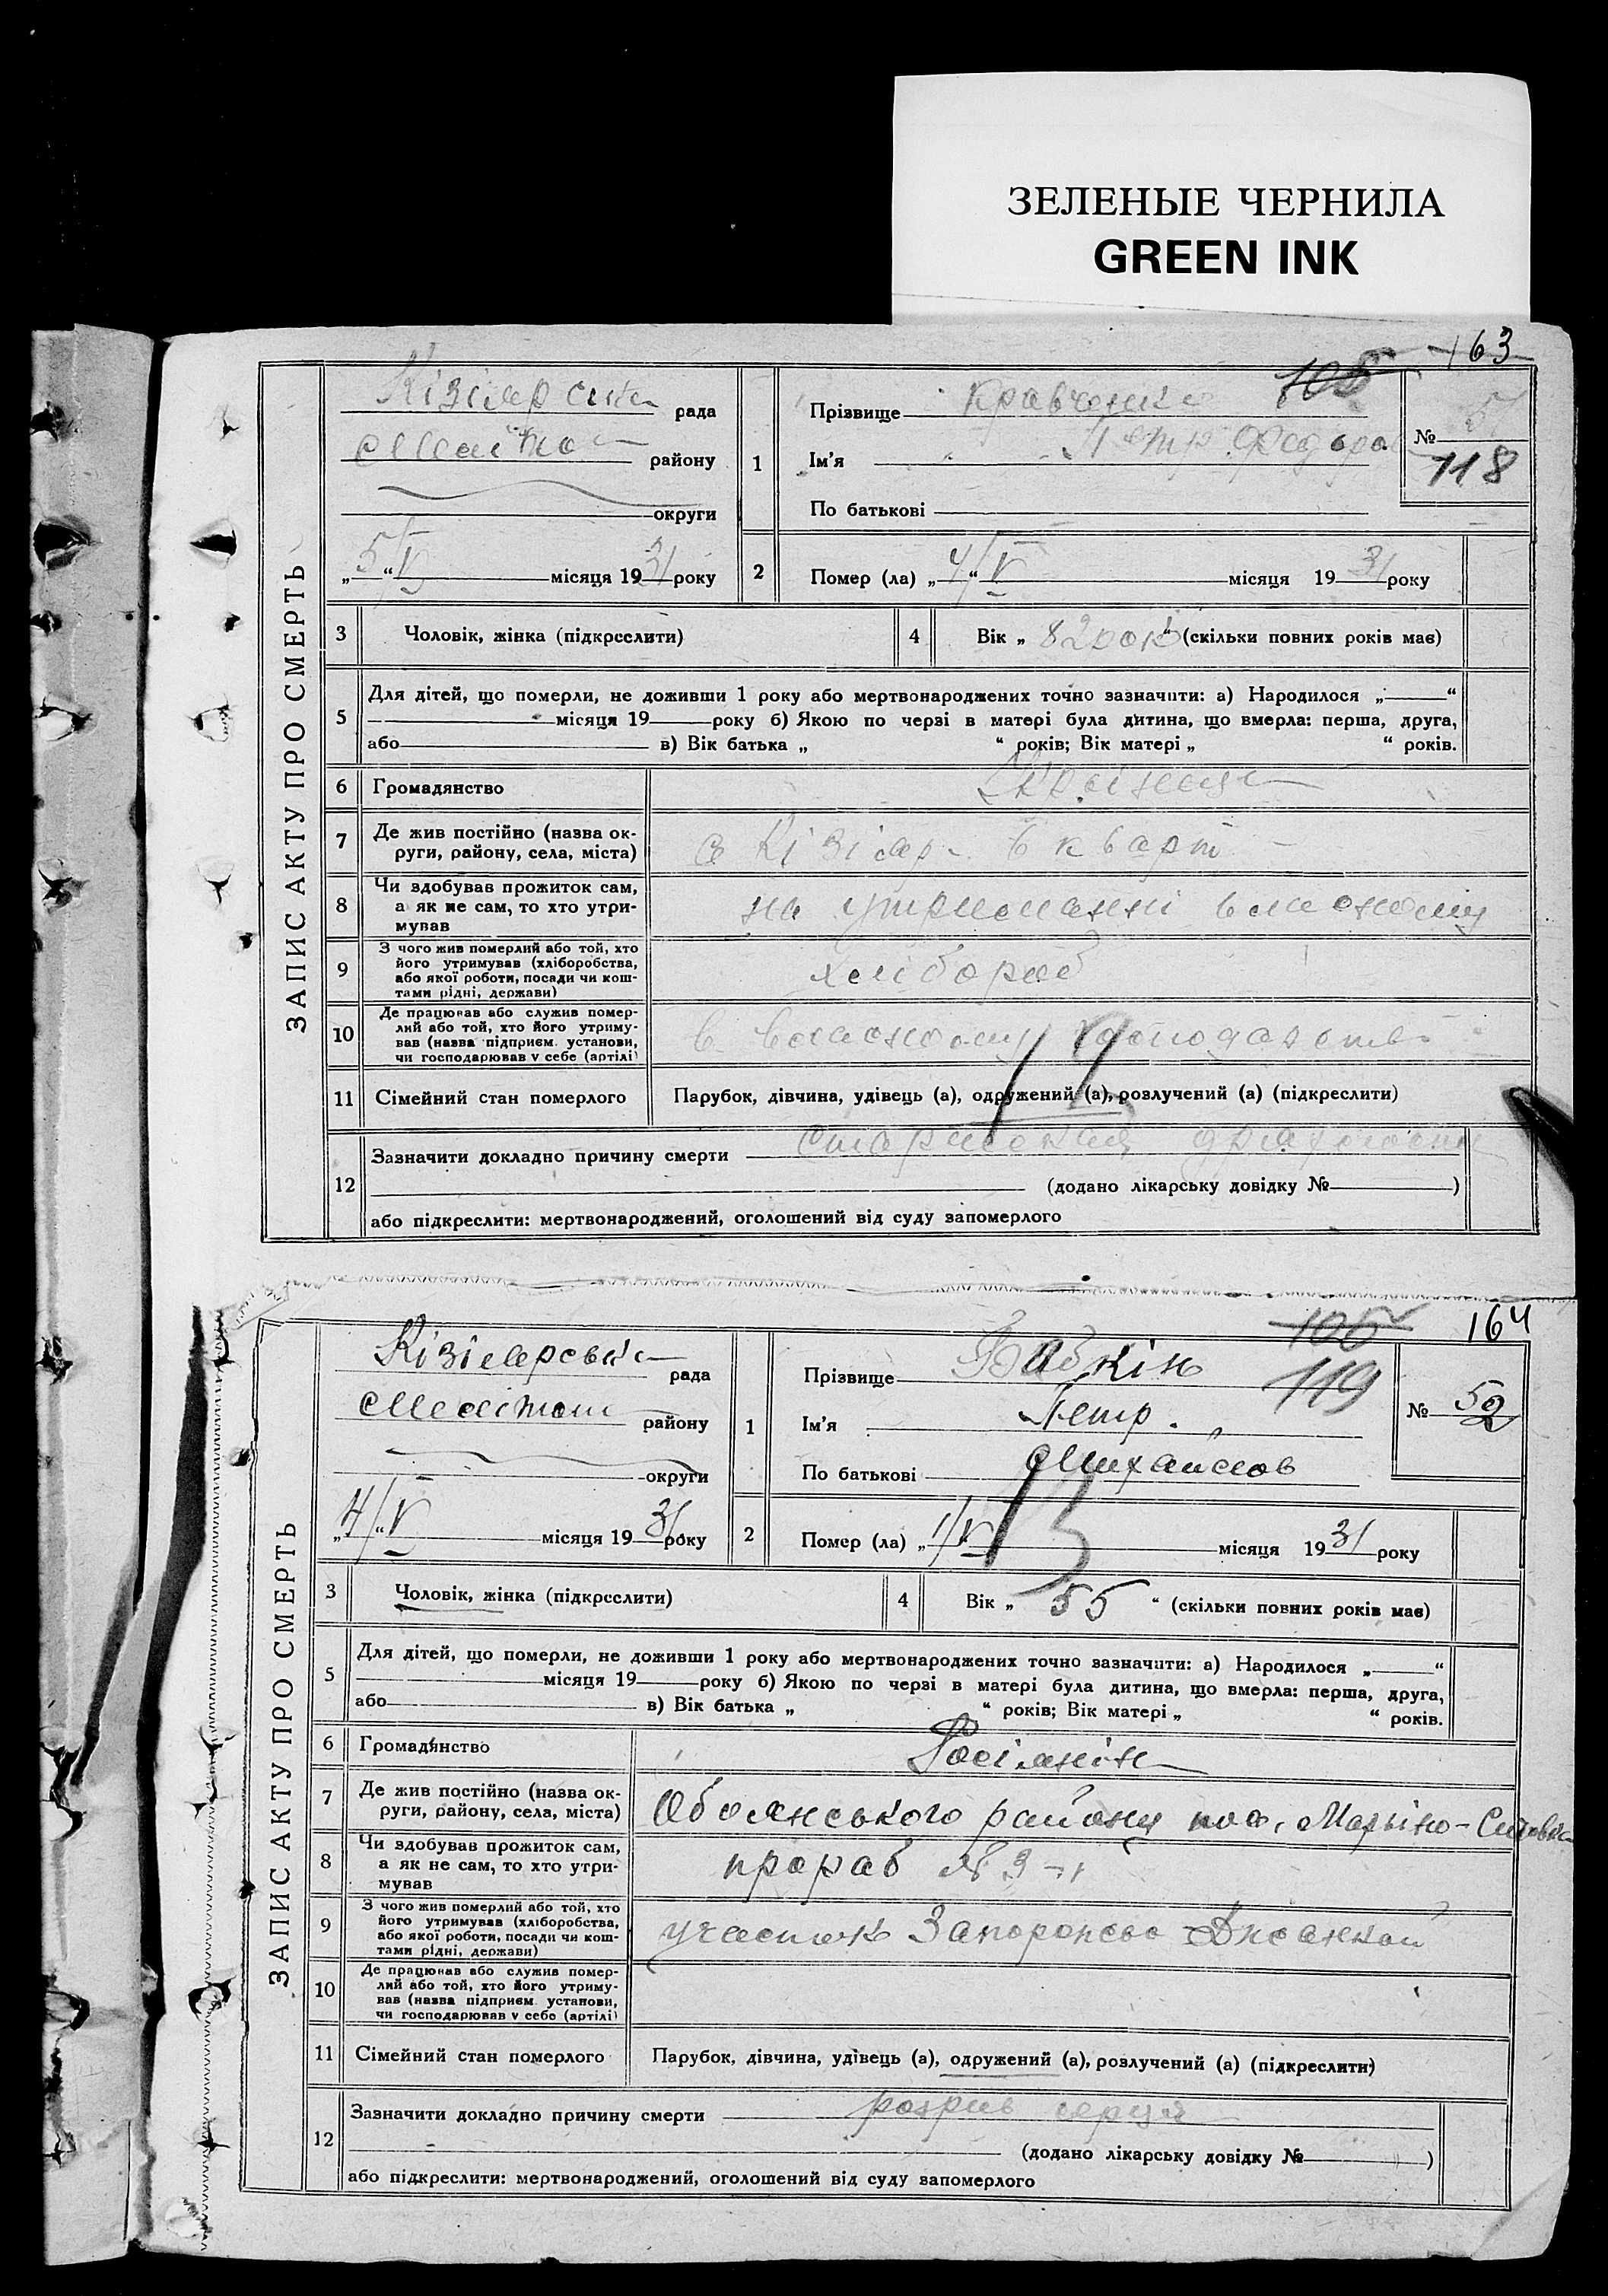 ЗЕЛЕНЫЕ ЧЕРНИЛА
GREEN INK
163
ЗАПИС АКТУ ПРО СМЕРТЬ
рада
району
округи
„5“ V місяця 1931 року
1
Прізвище Кравченко
Ім'я Петр Федоров
По батькові
№ 51
118
2
Помер (ла) „4“ V місяця 1931 року
3 Чоловік, жінка (підкреслити)
4 Вік „82 рок“ (скільки повних років має)
5
Для дітей, що померли, не доживши 1 року або мертвонароджених точно зазначити: а) Народилося „ “
місяця 19 року б) Якою по черзі в матері була дитина, що вмерла: перша, друга,
або в) Вік батька „ “ років; Вік матері „ “ років.
6 Громадянство
7 Де жив постійно (назва ок-
руги, району, села, міста)
8 Чи здобував прожиток сам,
а як не сам, то хто утри-
мував
на утриманні
9 З чого жив померлий або той, хто
його утримував (хліборобства,
або якої роботи, посади чи кош-
тами рідні, держави)
хлібороб
10 Де працював або служив помер-
лий або той, хто його утриму-
вав (назва підприєм. установи,
чи господарював у себе (артілі)
в власному господарстві
11 Сімейний стан померлого
Парубок, дівчина, удівець (а), одружений (а), розлучений (а) (підкреслити)
12
Зазначити докладно причину смерти
(додано лікарську довідку № )
або підкреслити: мертвонароджений, оголошений від суду запомерлого
164
ЗАПИС АКТУ ПРО СМЕРТЬ
Кізіярська рада
Меліт району
округи
„4“ V місяця 1931 року
1
Прізвище Бабкін
119
Ім'я Петр
По батькові Михайлов
№ 52
2
Помер (ла) „1“ V місяця 1931 року
13
3 Чоловік, жінка (підкреслити)
4 Вік „ 55 “ (скільки повних років має)
5
Для дітей, що померли, не доживши 1 року або мертвонароджених точно зазначити: а) Народилося „ “
місяця 19 року б) Якою по черзі в матері була дитина, що вмерла: перша, друга,
або в) Вік батька „ “ років; Вік матері „ “ років.
6 Громадянство
Росіянін
7 Де жив постійно (назва ок-
руги, району, села, міста)
Обоянського району
8 Чи здобував прожиток сам,
а як не сам, то хто утри-
мував
прораб № 3
9 З чого жив померлий або той, хто
його утримував (хліборобства,
або якої роботи, посади чи кош-
тами рідні, держави)
участок
10 Де працював або служив помер-
лий або той, хто його утриму-
вав (назва підприєм. установи,
чи господарював у себе (артілі)
11 Сімейний стан померлого
Парубок, дівчина, удівець (а), одружений (а), розлучений (а) (підкреслити)
12
Зазначити докладно причину смерти розрив серця
(додано лікарську довідку № )
або підкреслити: мертвонароджений, оголошений від суду запомерлого